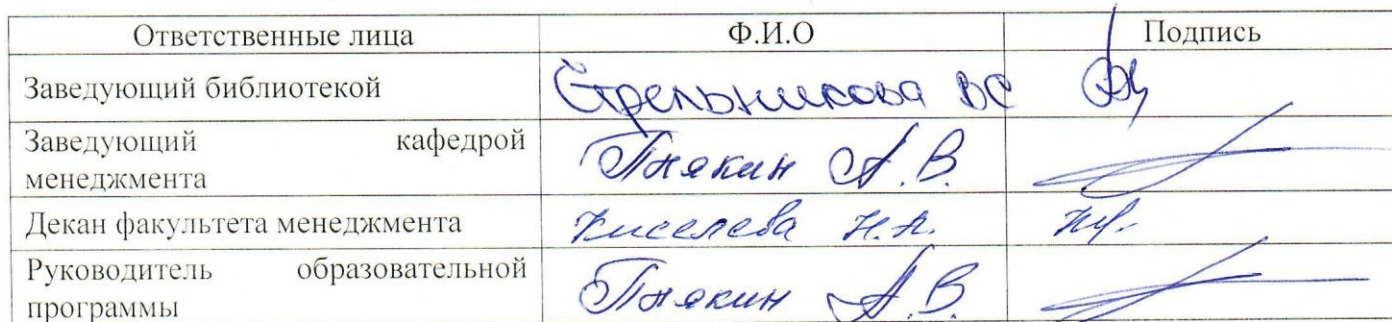 Ответственные лица Ф.И.О Подпись
Заведующий библиотекой Стрельникова ВС
Заведующий кафедрой
менеджмента
Пнякин А.В.
Декан факультета менеджмента Киселева Н.Н.
Руководитель образовательной
программы
Пнякин А.В.